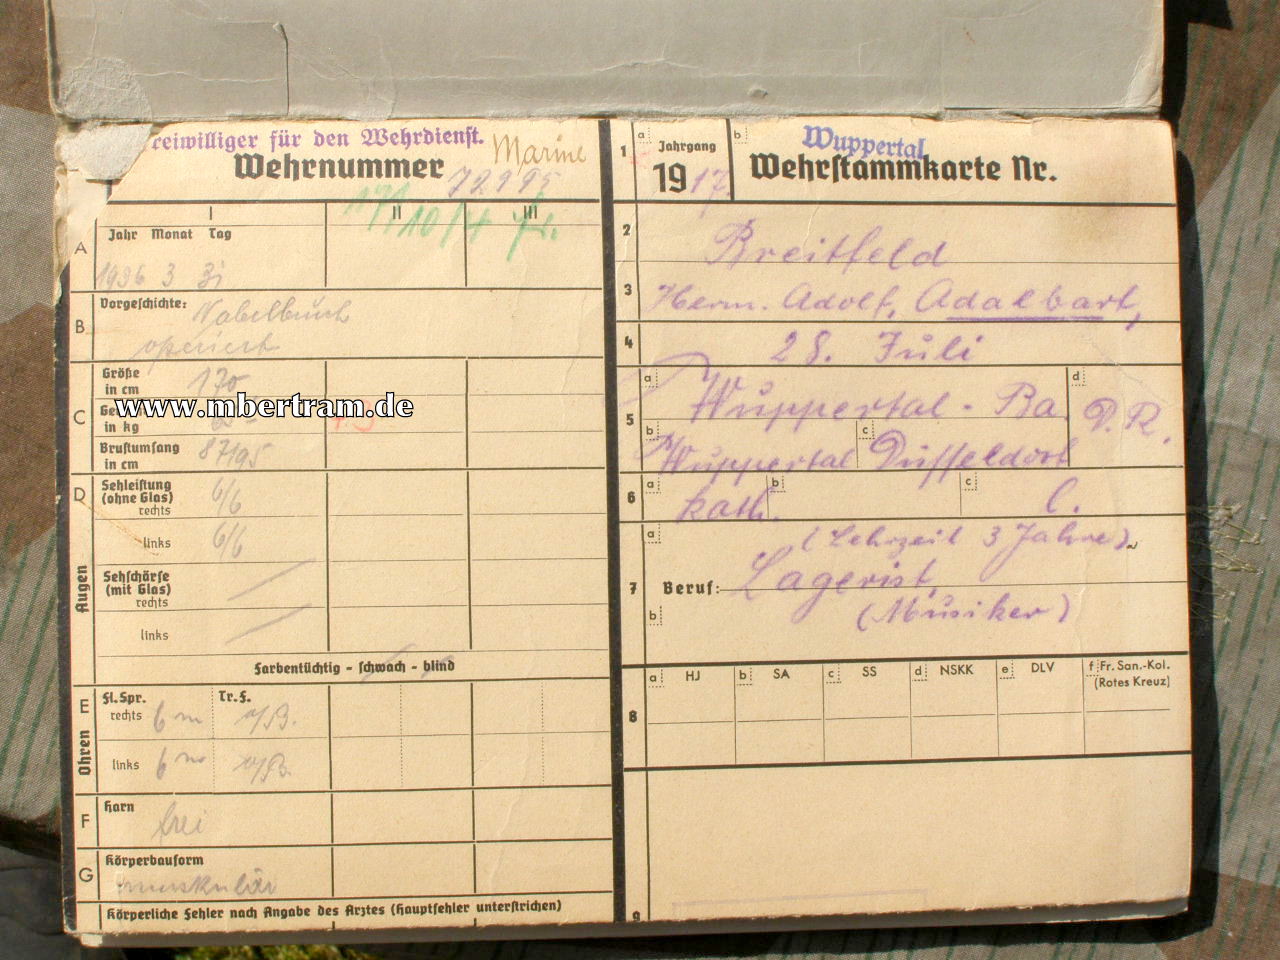 reiwilliger für den Wehrdienst.
Marine
Wehrnummer
72995
I II III
A
Jahr Monat Tag
1936 3
B
Vorgeschichte: Nabelbruch
operiert
C
Größe
in cm
170
in kg
www.mbertram.de
Brustumfang
in cm
87/95
D
Augen
Sehleistung
(ohne Glas)
rechts
6/6
links
6/6
Sehschärfe
(mit Glas)
rechts
links
Farbentüchtig - schwach - blind
E
Ohren
Fl.Spr. Tr.F.
rechts 6 m
links 6 m
F
Harn
frei
G
Körperbauform
muskulär
Körperliche Fehler nach Angabe des Arztes (Hauptfehler unterstrichen)
1
a Jahrgang
1917.
b Wuppertal
Wehrstammkarte Nr.
2 Breitfeld
3 Herm. Adolf, Adalbart,
4 28. Juli
5 a Wuppertal - Ba. d D.R.
b Wuppertal c Düsseldorf
6 a kath. b c l.
7 a (Lehrzeit 3 Jahre)
Beruf: Lagerist,
b (Musiker)
8
a HJ b SA c SS d NSKK e DLV f Fr. San.-Kol.
(Rotes Kreuz)
9